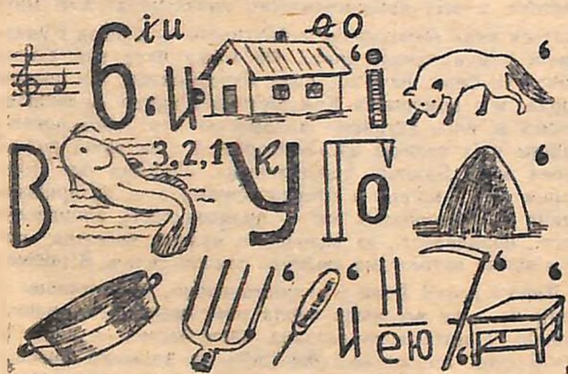 6 іи ‘ и ео ‘ і ‘
В 3,2,1 У к Го ‘
‘ ‘ и н ею ‘ ‘ ‘